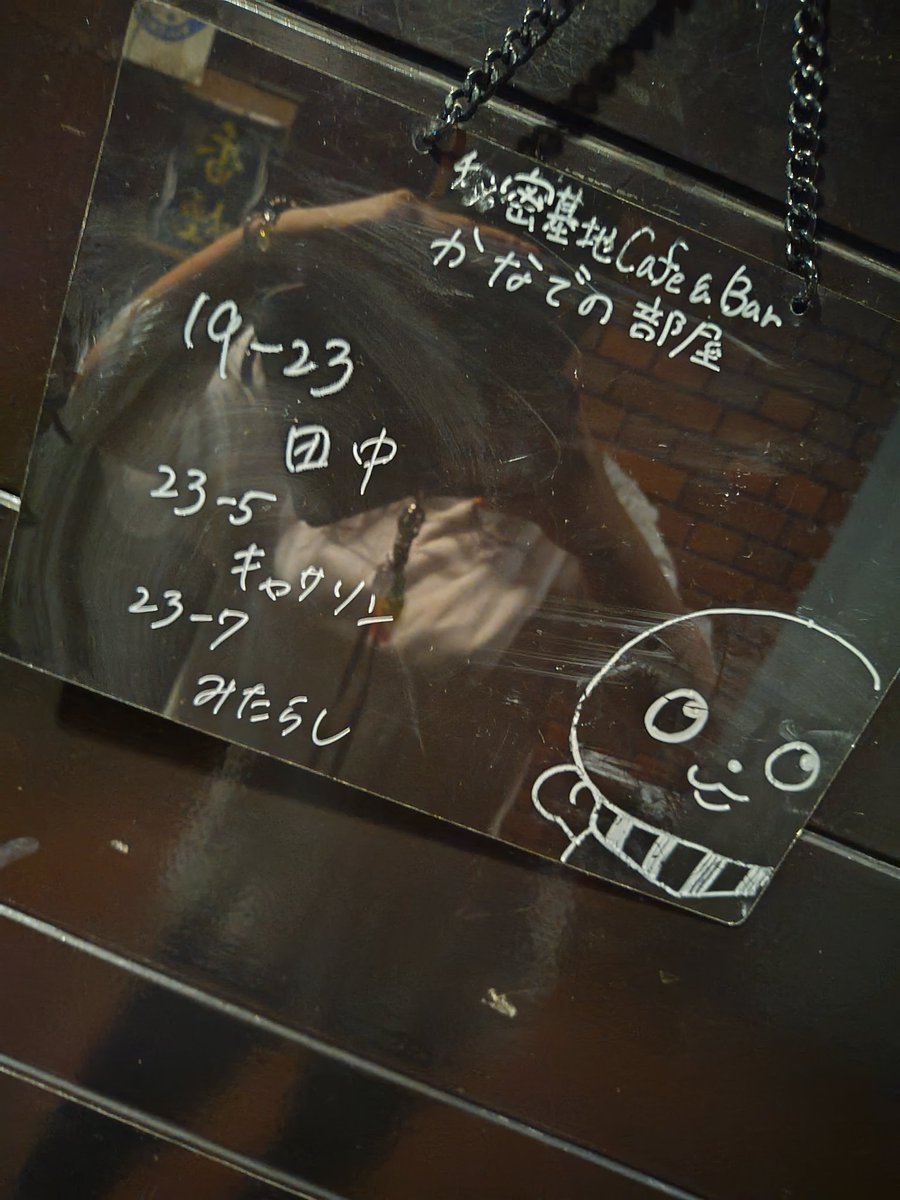 秘密基地Cafe&Bar
かなでの部屋
19-23
田中
23-5
キャサリン
23-7
みたらし